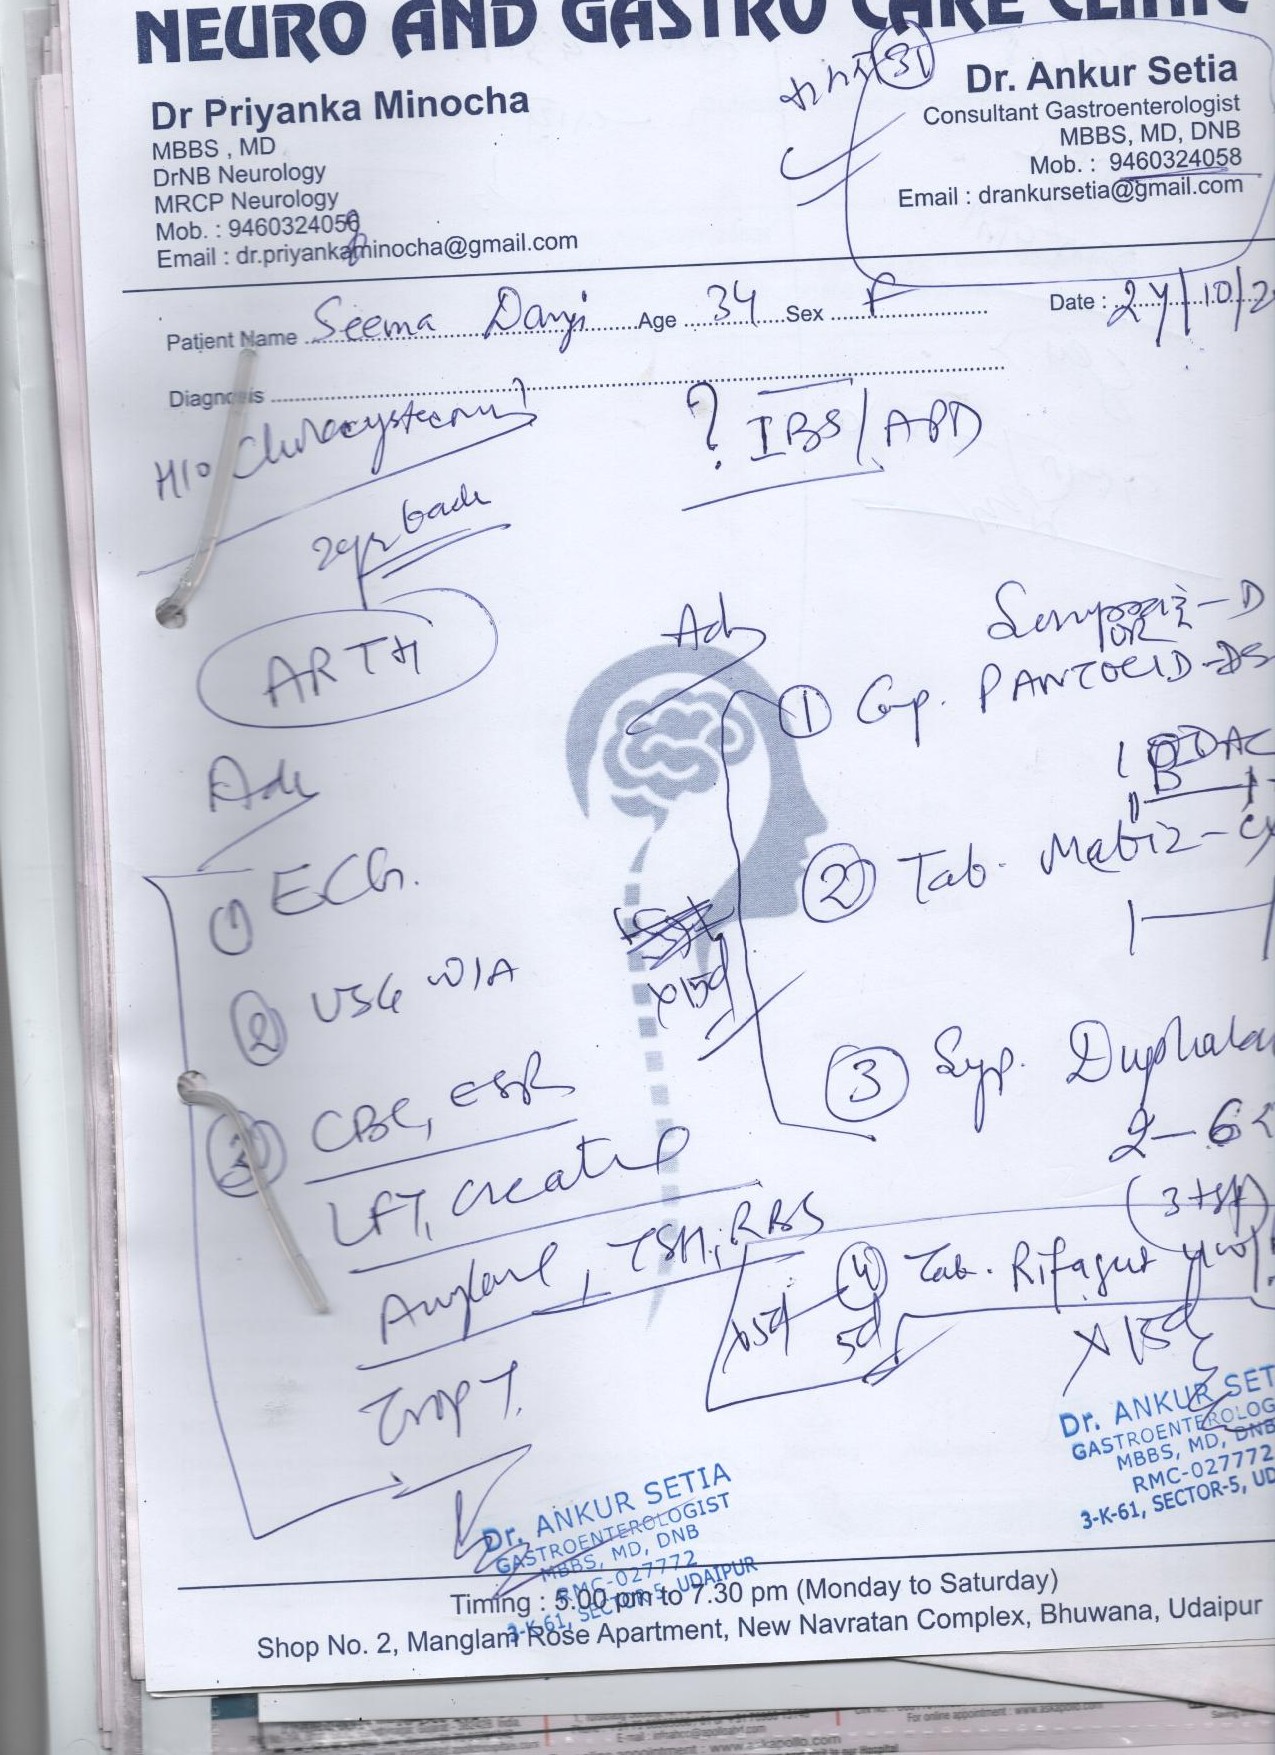 NEURO AND GASTRO CARE CLINIC
31
Dr Priyanka Minocha
MBBS , MD
DrNB Neurology
MRCP Neurology
Mob. : 9460324056
Email : dr.priyankaminocha@gmail.com
Dr. Ankur Setia
Consultant Gastroenterologist
MBBS, MD, DNB
Mob. : 9460324058
Email : drankursetia@gmail.com
Patient Name Seema Dangi Age 34 Sex F Date : 24/10/2
Diagnosis
H/O Cholecystectomy
2yr back
? IBS/APD
ARTH
Adv
① ECG.
② USG W/A
③ CBC, ESR
LFT, Creat
Amylase, TSH, RBS
Trop T.
Adv
-D
OR
① Cap. PANTOCID-DS
1 OD AC
② Tab. Mebiz-
x15d
③ Syp. Duphala
2-6
(3 tsf)
④ Tab. Rifagut
x5d
5d
x 15d
Dr. ANKUR SET
GASTROENTEROLOG
MBBS, MD, DNB
RMC-027772
3-K-61, SECTOR-5, UD
Dr. ANKUR SETIA
GASTROENTEROLOGIST
MBBS, MD, DNB
RMC-027772
3-K-61, SECTOR-5, UDAIPUR
Timing : 5.00 pm to 7.30 pm (Monday to Saturday)
Shop No. 2, Manglam Rose Apartment, New Navratan Complex, Bhuwana, Udaipur
For online appointment : www.askapollo.com